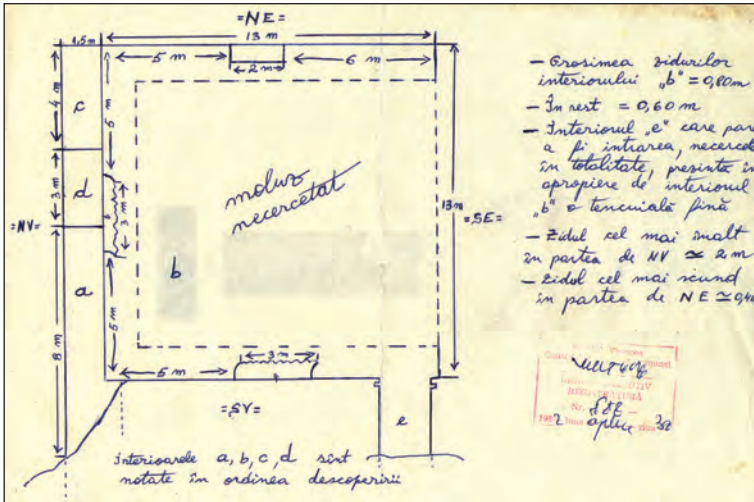 =NE=
13 m
1,5 m
5 m
2 m
6 m
4 m
c
5 m
3 m
d
3 m
=NV=
a
8 m
5 m
b
moluz
necercetat
13 m
=SE=
5 m
3 m
=SV=
e
interioarele a, b, c, d sînt
notate în ordinea descoperirii
– Grosimea zidurilor
interiorului „b" = 0,80 m
– În rest = 0,60 m
– Interiorul „e" care pare
a fi intrarea, necercet
în totalitate, presintă în
apropiere de interiorul
„b" o tencuială fină
– Zidul cel mai înalt
în partea de NV ≃ 2 m
– Zidul cel mai scund
în partea de NE ≃ 0,4
REGISTRATURĂ
Nr.
luna aprilie ziua